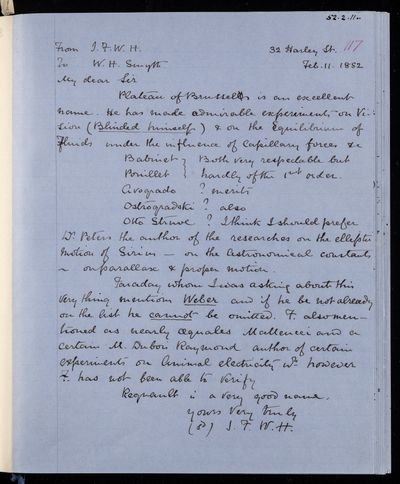 52.2.11.
From J.F.W.H. 32 Harley St. 117
To W.H. Smyth Feb. 11. 1852
My dear Sir
Plateau of Brussells is an excellent
name. He has made admirable experiments on Vi-
sion (Blinded himself) & on the Equilibrium of
Fluids under the influence of Capillary forces &c
Babinet } Both very respectable but
Pouillet } hardly of the 1st order.
Avogado ? merits
Ostrogradski ? also
Otto Struve ? I think I should prefer
Dr. Peters the author of the researches on the elliptic
motion of Sirius — on the Astronomical constants
~ on parallax & proper motion.
Faraday whom I was asking about this
very thing mentions Weber and if he be not already
on the list he cannot be omitted. F. also men-
tioned as nearly æquales Matteucci and a
certain M. Dubois Raymond author of certain
experiments on Animal electricity wh. however
F. has not been able to verify
Regnault is a very good name.
Yours very truly
J.F.W.H.